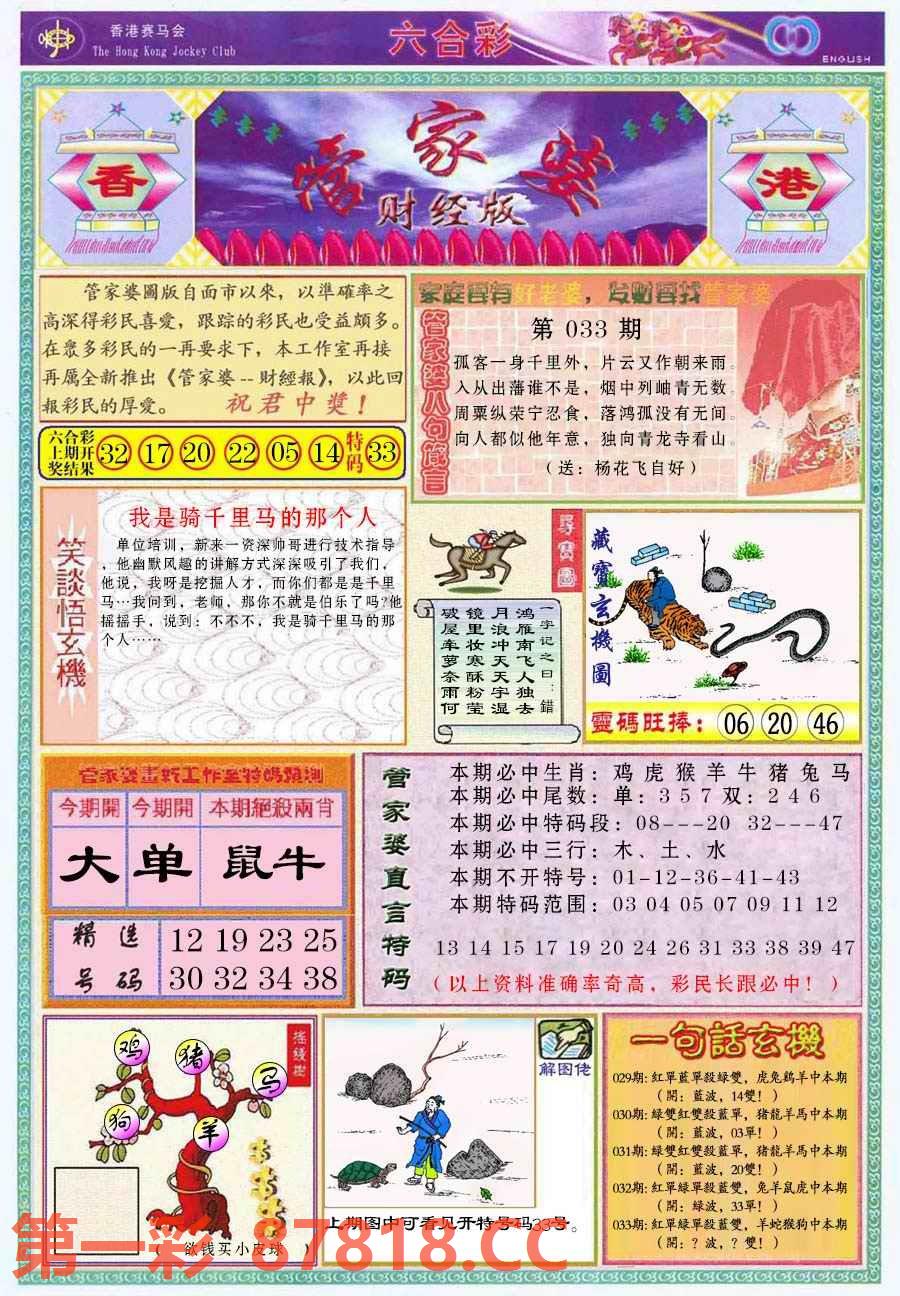 香港赛马会
The Hong Kong Jockey Club
六合彩
ENGLISH
香
管家婆
财经版
港
管家婆圖版自面市以來，以準確率之
高深得彩民喜愛，跟踪的彩民也受益頗多。
在眾多彩民的一再要求下，本工作室再接
再厲全新推出《管家婆--財經報》，以此回
報彩民的厚愛。 祝君中獎！
六合彩
上期开
奖结果
32 17 20 22 05 14 特码 33
家庭要有好老婆，发财要找管家婆
管家婆八句箴言
第 033 期
孤客一身千里外，片云又作朝来雨。
入从出藩谁不是，烟中列岫青无数。
周粟纵荣宁忍食，落鸿孤没有无间。
向人都似他年意，独向青龙寺看山。
（送：杨花飞自好）
笑談悟玄機
我是骑千里马的那个人
单位培训，新来一资深帅哥进行技术指导
，他幽默风趣的讲解方式深深吸引了我们，
他说，我呀是挖掘人才，而你们都是是千里
马…我问到，老师，那你不就是伯乐了吗?他
摇摇手，说到：不不不，我是骑千里马的那
个人……
一字记之曰：錯
鸿雁南飞人独去
月浪冲天天宇湿
镜里妆寒酥粉莹
破屋牵萝奈雨何
尋寶圖
藏寶玄機圖
靈碼旺捧： 06 20 46
今期開 今期開 本期絕殺兩肖
大 单 鼠牛
精选
号码
12 19 23 25
30 32 34 38
管家婆直言特码
本期必中生肖：鸡 虎 猴 羊 牛 猪 兔 马
本期必中尾数：单：3 5 7 双：2 4 6
本期必中特码段：08---20 32---47
本期必中三行：木、土、水
本期不开特号：01-12-36-41-43
本期特码范围：03 04 05 07 09 11 12
13 14 15 17 19 20 24 26 31 33 38 39 47
（以上资料准确率奇高，彩民长跟必中！）
搖錢樹
鸡
猪
马
狗
羊
（ 欲钱买小皮球 ）
解图佬
上期图中可看见开特号码33号。
一句話玄機
029期: 紅單藍單殺綠雙，虎兔鷄羊中本期
（開：藍波，14雙！）
030期: 緑雙紅雙殺藍單，猪龍羊馬中本期
（開：藍波，03單！）
031期: 緑雙紅雙殺藍單，猪龍羊馬中本期
（開：藍波，20雙！）
032期: 紅單緑單殺藍雙，兔羊鼠虎中本期
（開：緑波，33單！）
033期: 紅單緑單殺藍雙，羊蛇猴狗中本期
（開：？波，？雙！）
第一彩 87818.CC